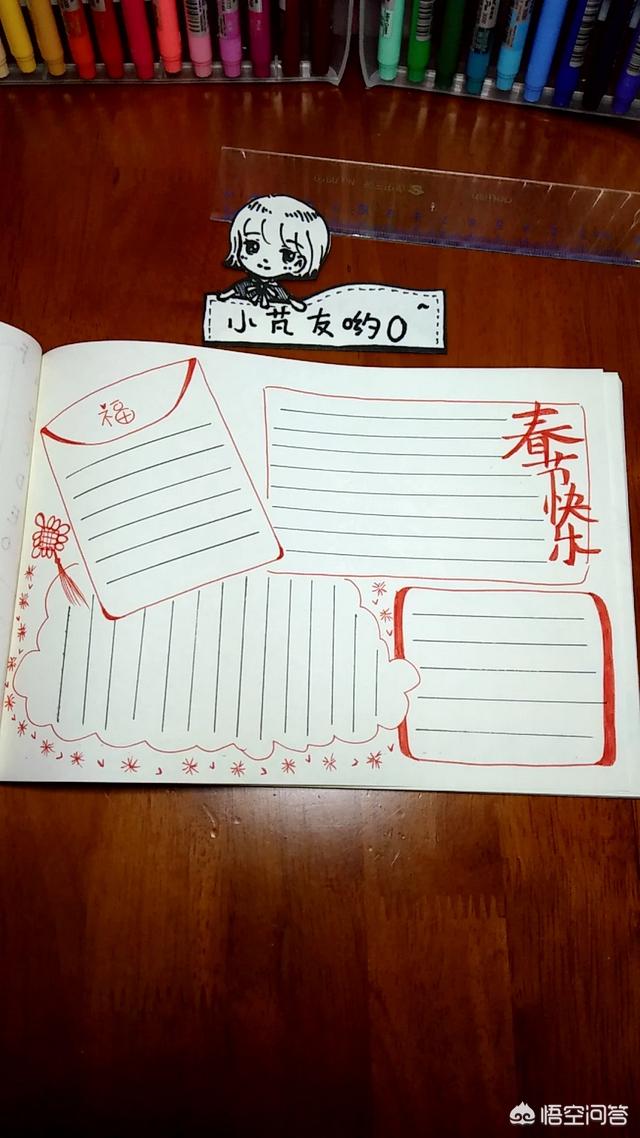 小芃友哟O~
福
春节快乐
悟空问答